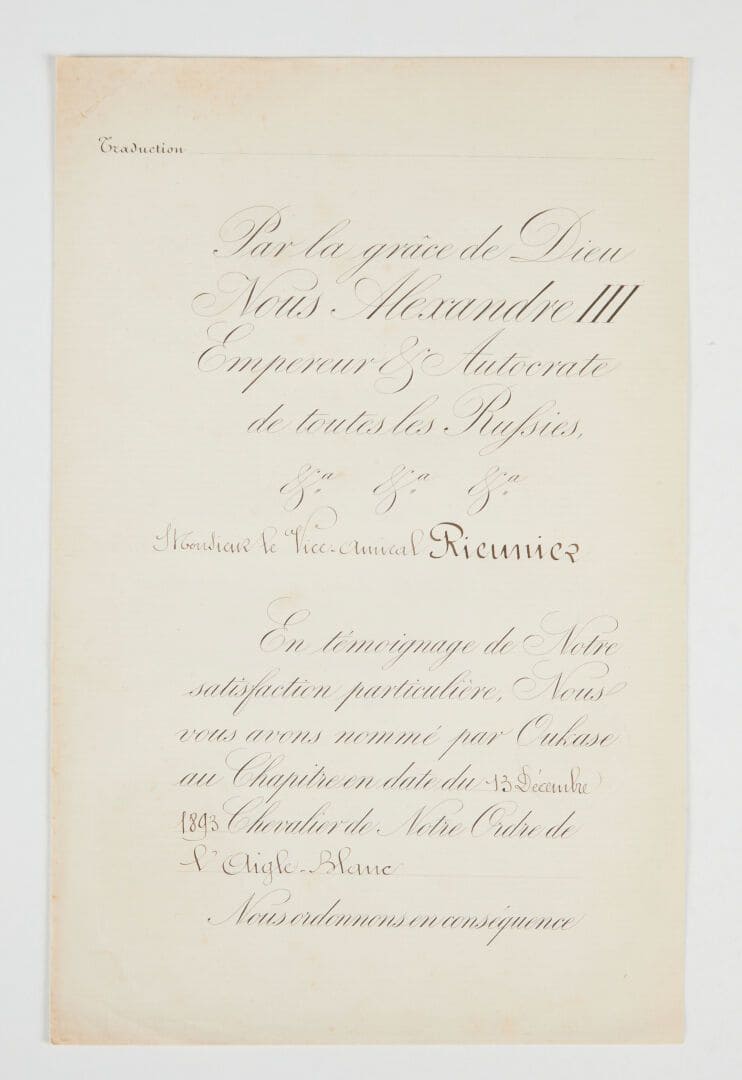 Traduction
Par la grâce de Dieu
Nous Alexandre III
Empereur & Autocrate
de toutes les Russies,
&.a &.a &.a
Monsieur le Vice-Amiral Rieunier
En témoignage de Notre
satisfaction particulière, Nous
vous avons nommé par Oukase
au Chapitre en date du 13 Décembre
1893 Chevalier de Notre Ordre de
l'Aigle-Blanc
Nous ordonnons en conséquence